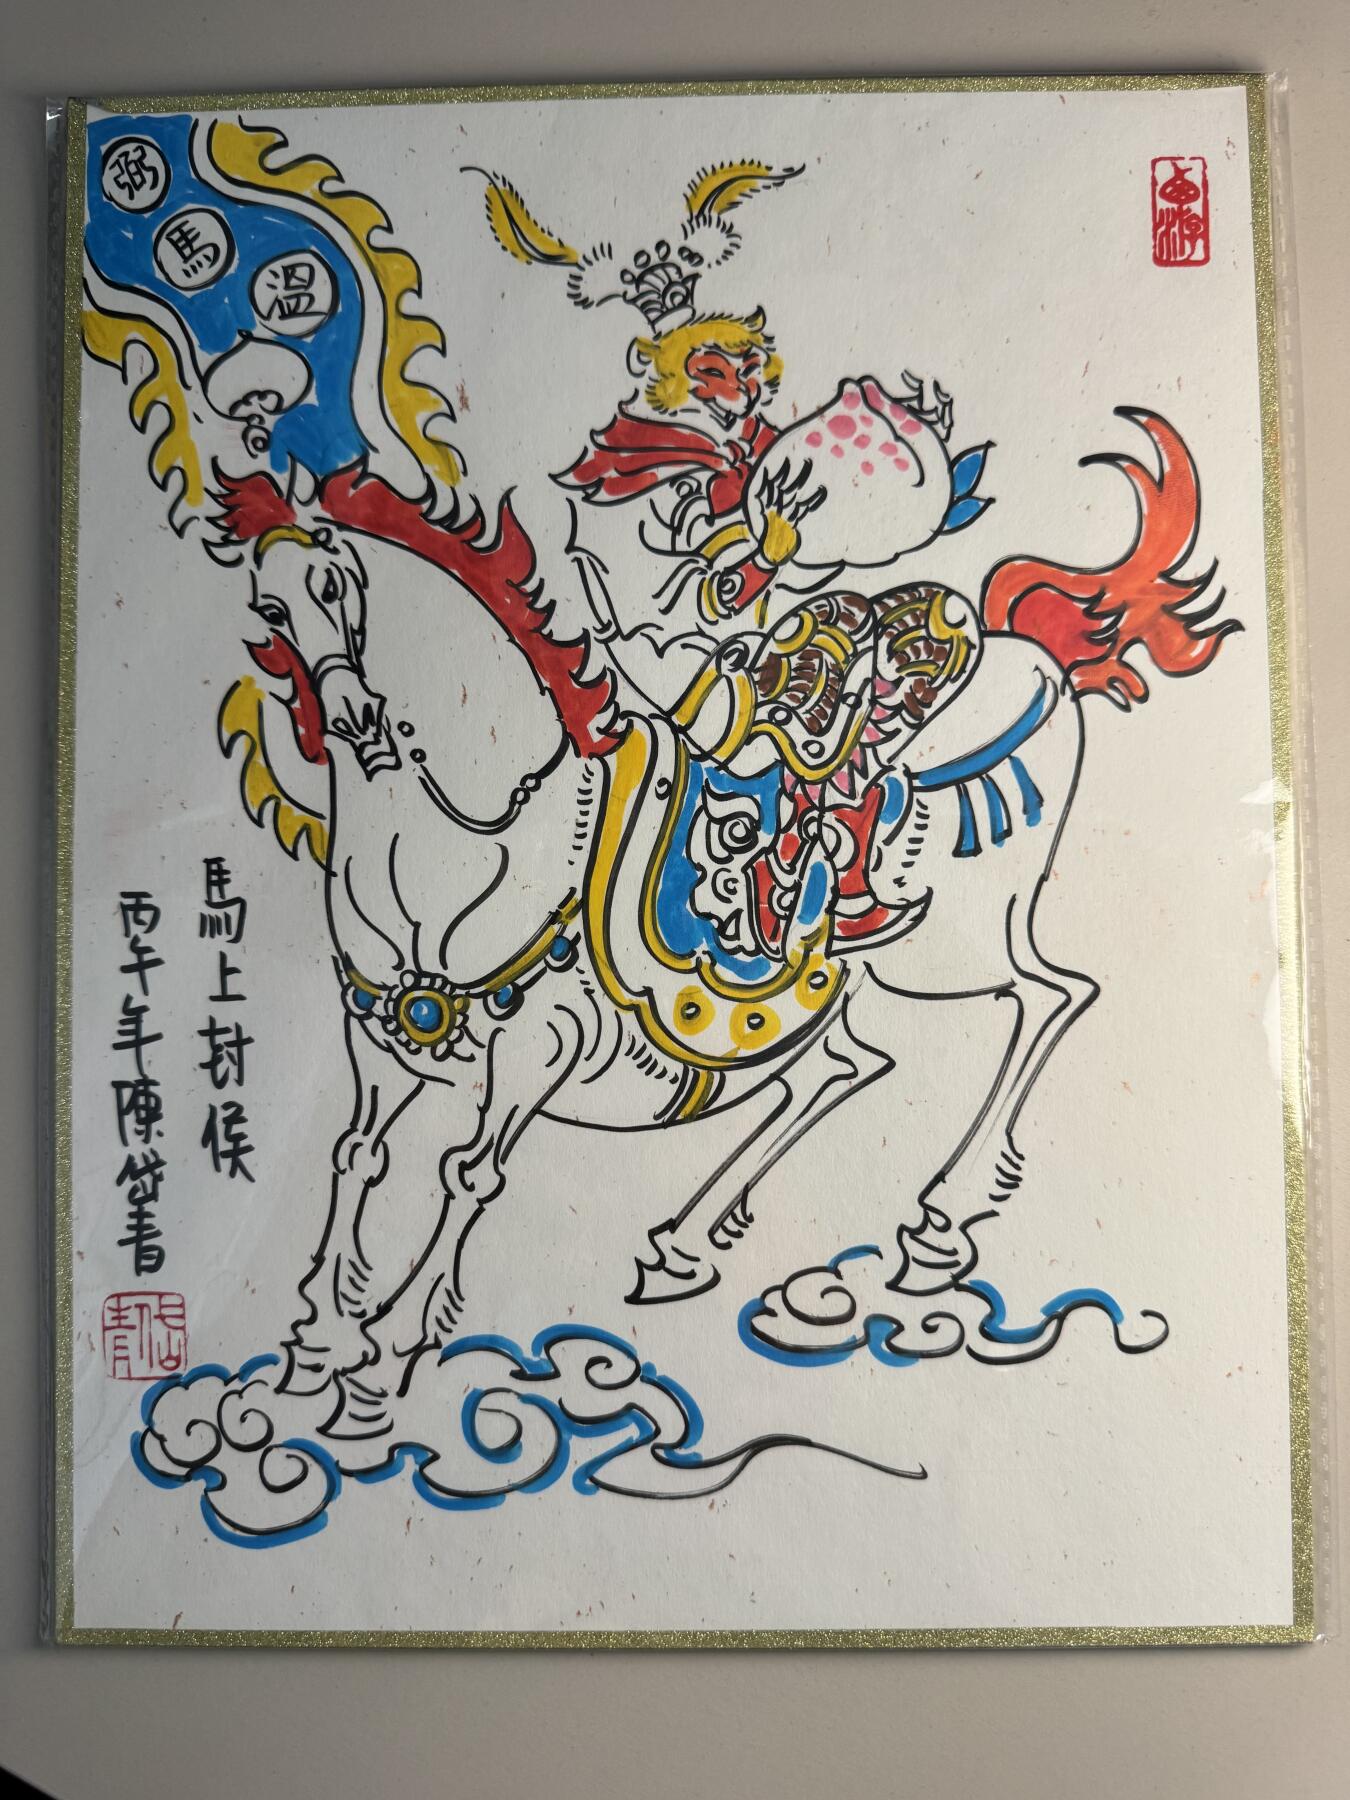 弼馬溫
馬上封侯
丙午年陳岱青
岱青